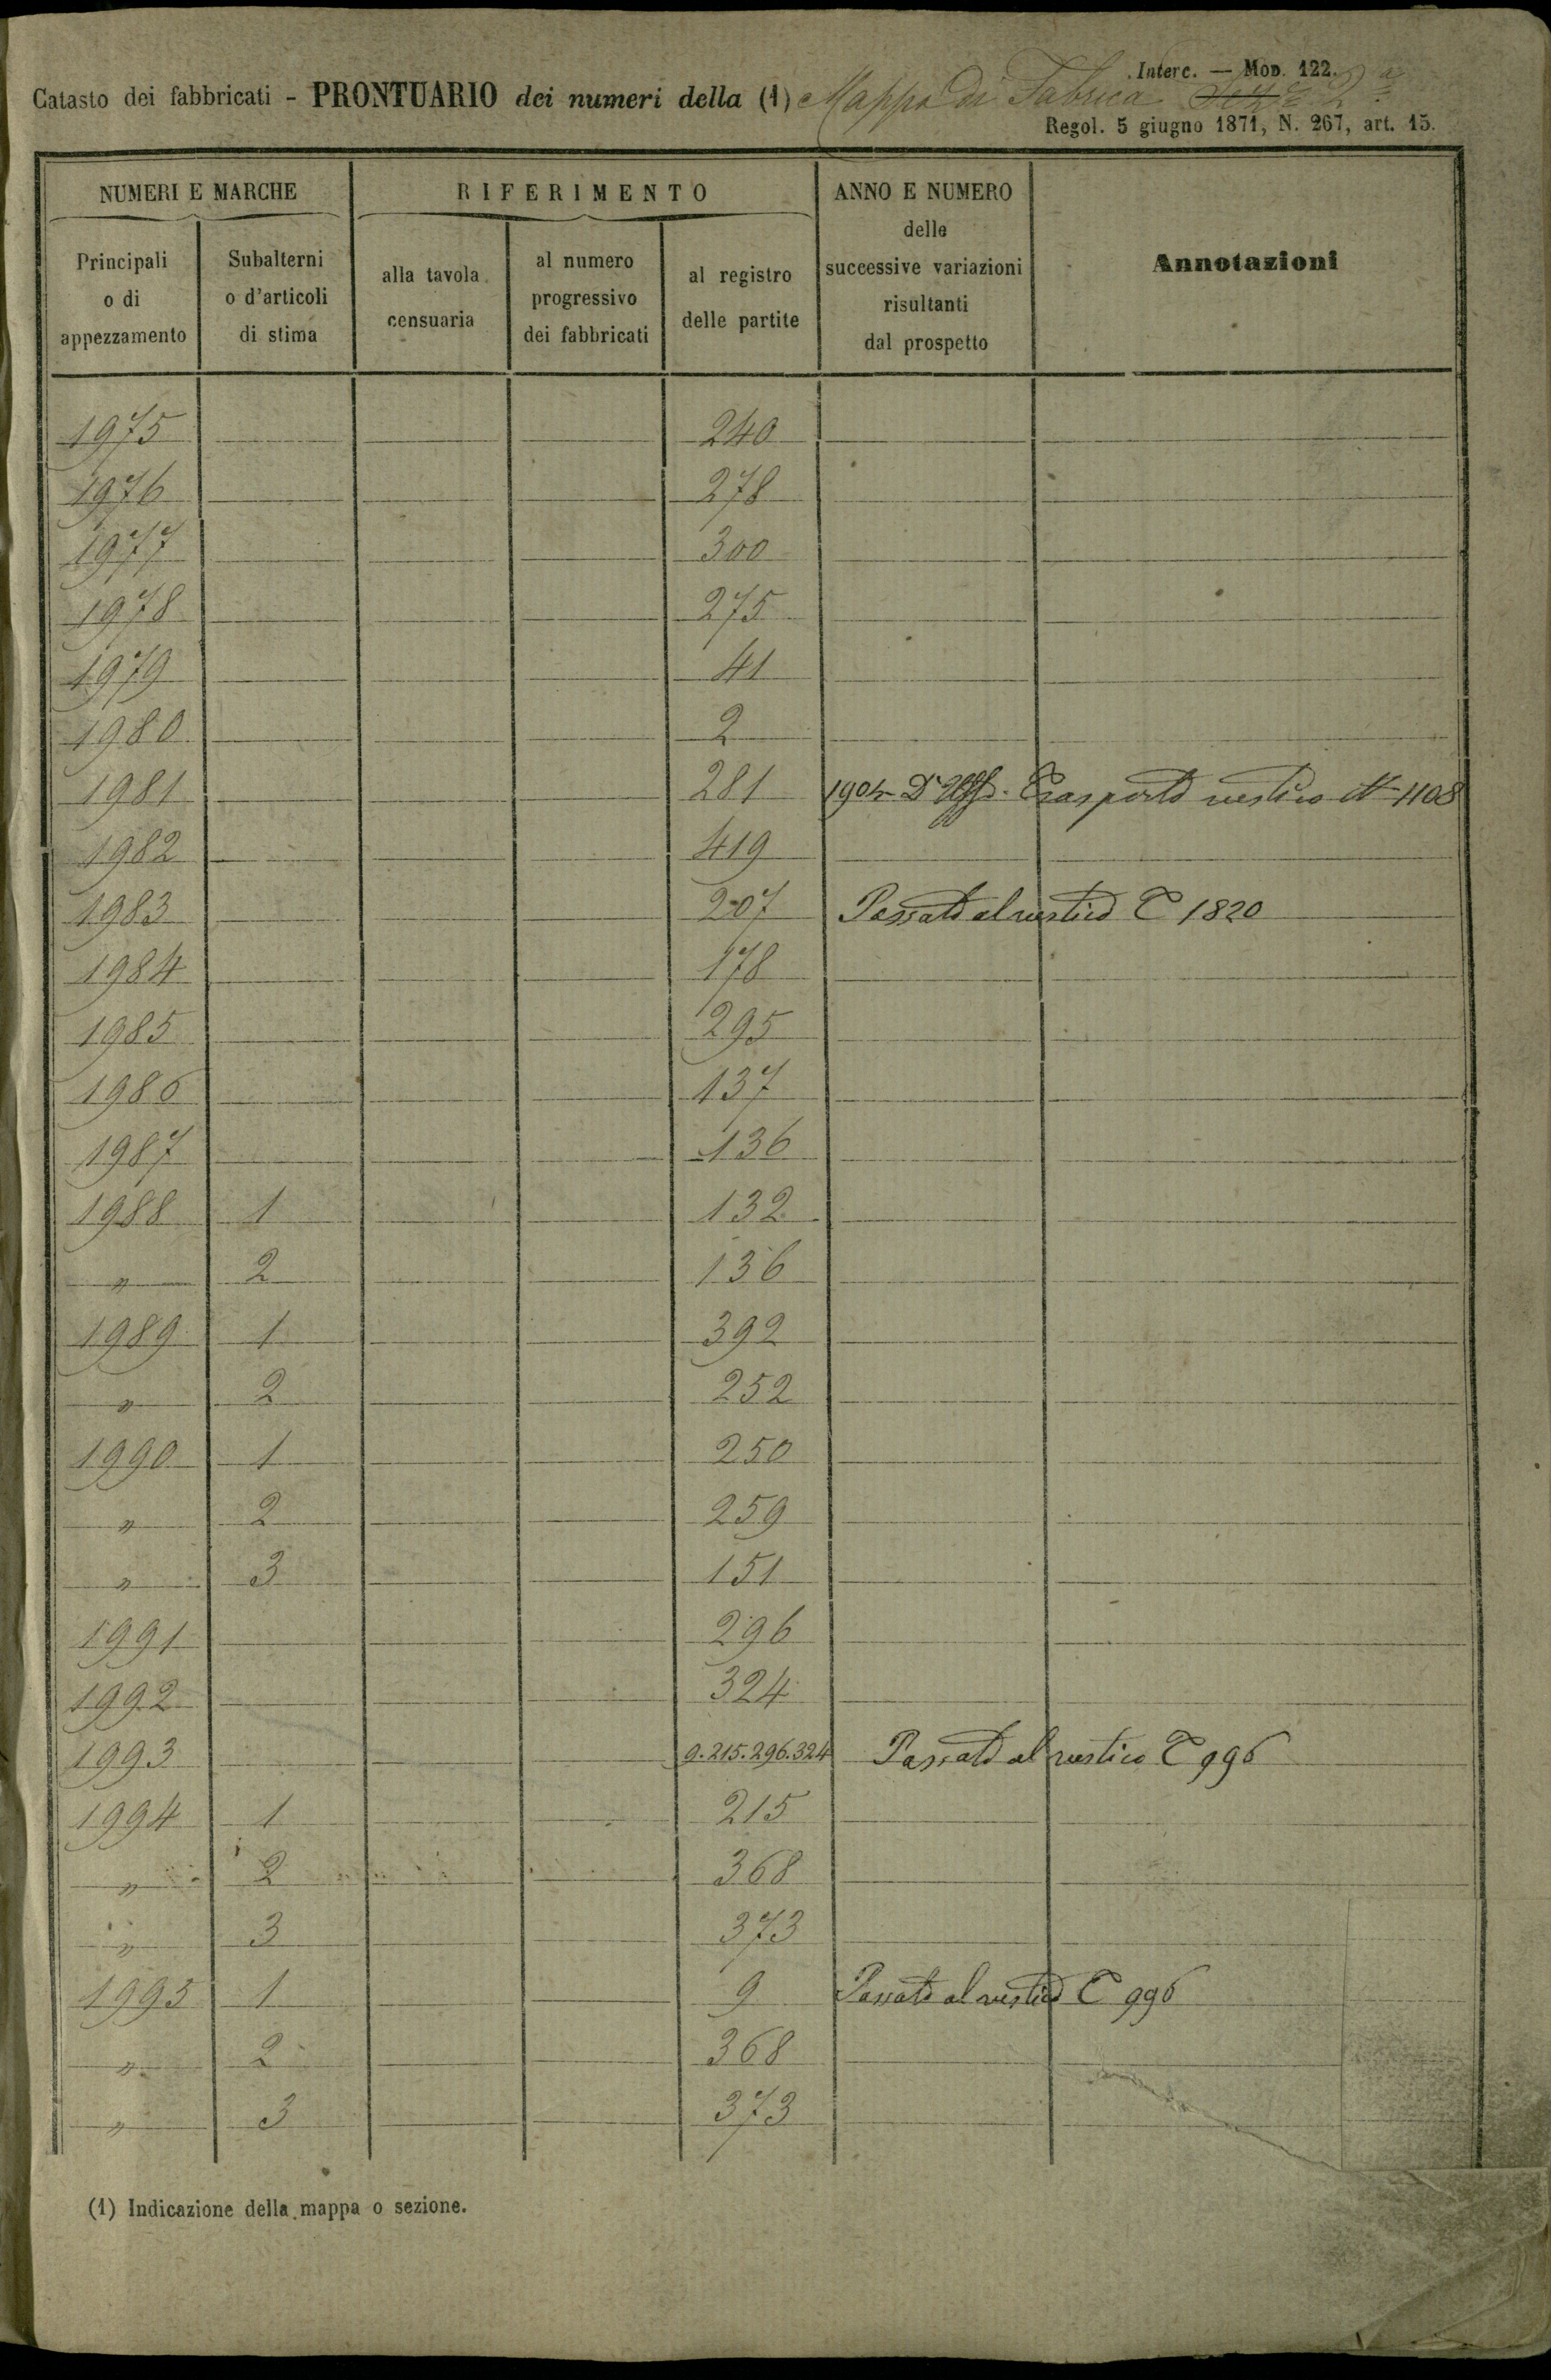 Interc. — Mod. 122.
Catasto dei fabbricati - PRONTUARIO dei numeri della (1) Mappa di Fabrica Sez.e 2.a
Regol. 5 giugno 1871, N. 267, art. 15.
NUMERI E MARCHE RIFERIMENTO ANNO E NUMERO delle successive variazioni risultanti dal prospetto Annotazioni
Principali o di appezzamento Subalterni o d'articoli di stima alla tavola censuaria al numero progressivo dei fabbricati al registro delle partite
1975 240
1976 278
1977 300
1978 275
1979 41
1980 2
1981 281 1904 D'Uff. Trasporto rustico N 1108
1982 419
1983 207 Passato al rustico C 1820
1984 178
1985 295
1986 137
1987 136
1988 1 132
" 2 136
1989 1 392
" 2 252
1990 1 250
" 2 259
" 3 151
1991 296
1992 324
1993 9.215.296.324 Passato al rustico C 996
1994 1 215
" 2 368
" 3 373
1995 1 9 Passato al rustico C 996
" 2 368
" 3 373
(1) Indicazione della mappa o sezione.